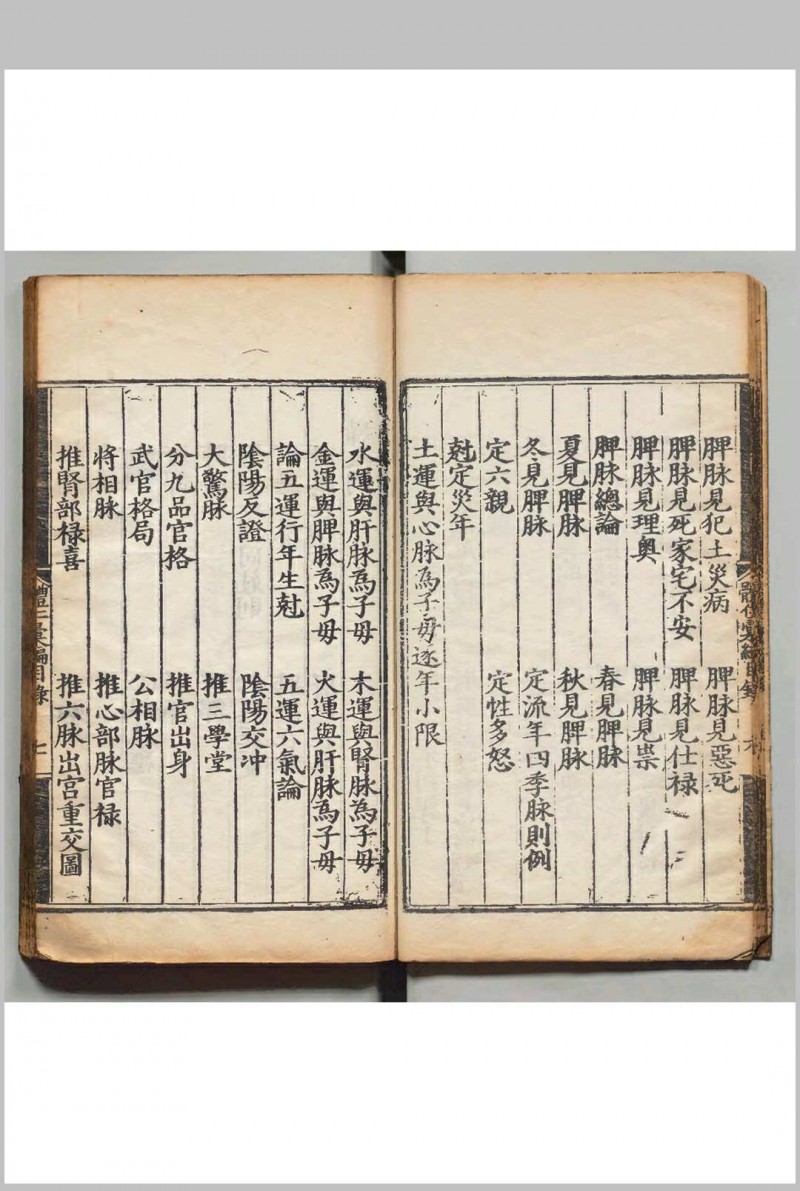 脾脉見犯土災病 脾脉見惡死
脾脉見死家宅不安 脾脉見仕禄
脾脉見理奧 脾脉見祟
脾脉總論 春見脾脉
夏見脾脉 秋見脾脉
冬見脾脉 定流年四季脉則例
定六親 定性多怒
尅定災年
土運與心脉為子母逐年小限
水運與肝脉為子母 木運與腎脉為子母
金運與脾脉為子母 火運與肝脉為子母
論五運行年生尅 五運六氣論
陰陽反證 陰陽交冲
大驚脉 推三學堂
分九品官格 推官出身
武官格局 公相脉
將相脉 推心部脉官禄
推腎部禄喜 推六脉出宫重交圖
彙編目錄 七